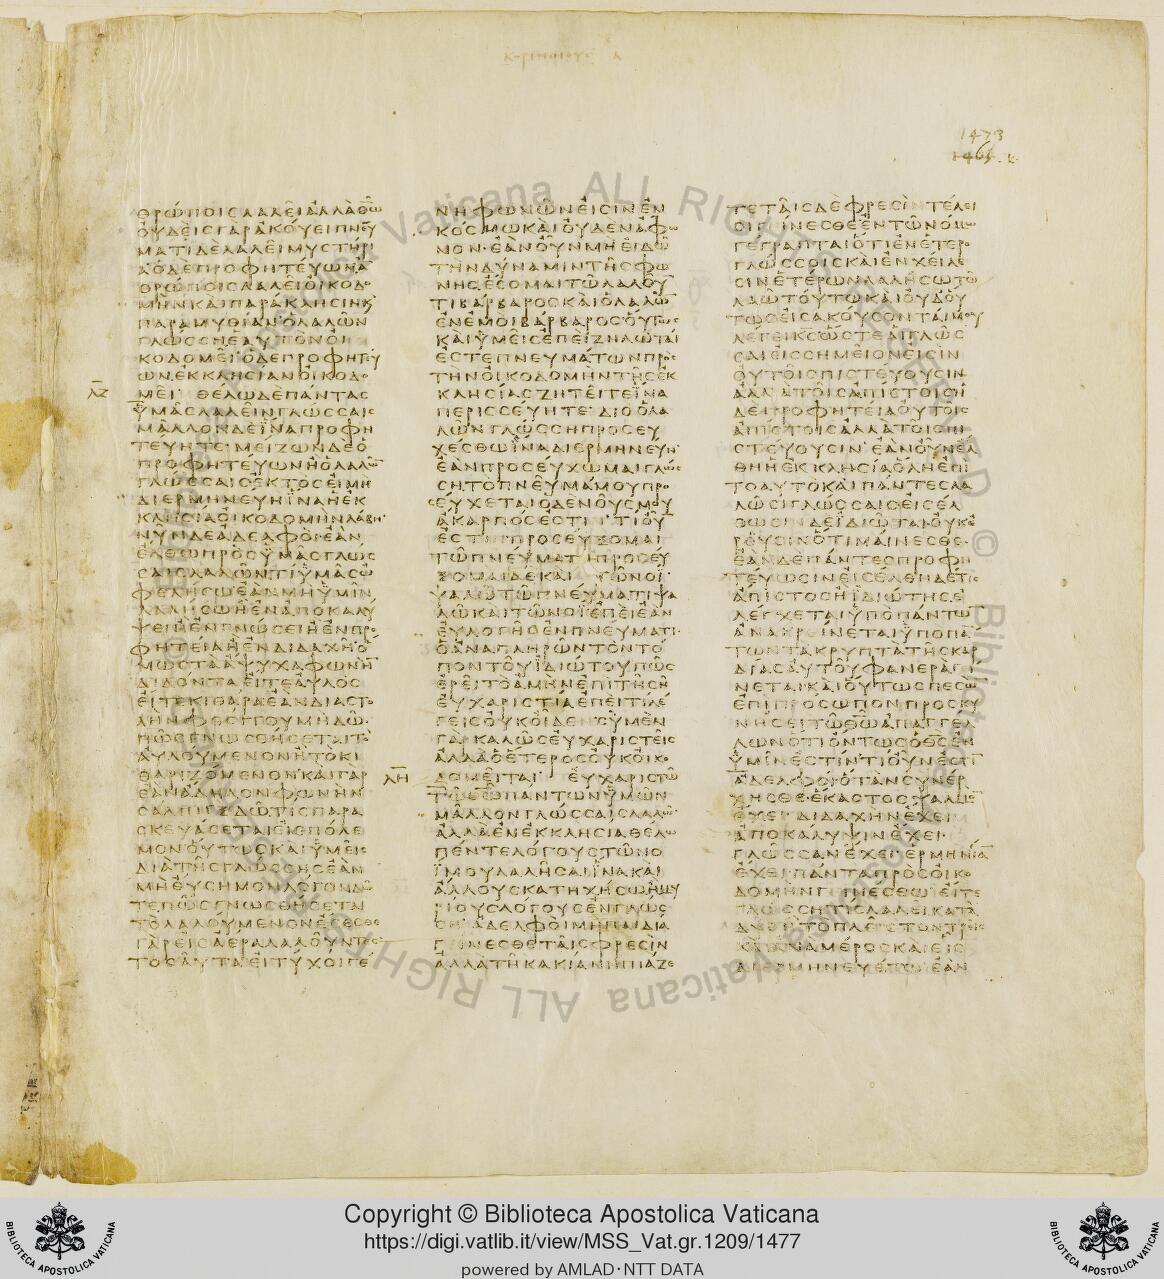 Κορινθίους α
1473
ΘΡΩΠΟΙΣΛΑΛΕΙΑΛΛΑΘΩ
ΟΥΔΕΙΣΓΑΡΑΚΟΥΕΙΠΝΕΥ
ΜΑΤΙΔΕΛΑΛΕΙΜΥΣΤΗΡΙ
ΑΟΔΕΠΡΟΦΗΤΕΥΩΝΑ
ΘΡΩΠΟΙΣΛΑΛΕΙΟΙΚΟΔΟ
ΜΗΝΚΑΙΠΑΡΑΚΛΗΣΙΝΚ
ΠΑΡΑΜΥΘΙΑΝΟΛΑΛΩΝ
ΓΛΩΣΣΗΕΑΥΤΟΝΟΙ
ΚΟΔΟΜΕΙΟΔΕΠΡΟΦΗΤΕΥ
ΩΝΕΚΚΛΗΣΙΑΝΟΙΚΟΔΟ
ΛΖ
ΜΕΙ ΘΕΛΩΔΕΠΑΝΤΑΣ
ΥΜΑΣΛΑΛΕΙΝΓΛΩΣΣΑΙΣ
ΜΑΛΛΟΝΔΕΙΝΑΠΡΟΦΗ
ΤΕΥΗΤΕ ΜΕΙΖΩΝΔΕΟ
ΠΡΟΦΗΤΕΥΩΝΗΟΛΑΛΩ
ΓΛΩΣΣΑΙΣΕΚΤΟΣΕΙΜΗ
ΔΙΕΡΜΗΝΕΥΗΙΝΑΗΕΚ
ΚΛΗΣΙΑΟΙΚΟΔΟΜΗΝΛΑΒΗ
ΝΥΝΔΕΑΔΕΛΦΟΙΕΑΝ
ΕΛΘΩΠΡΟΣΥΜΑΣΓΛΩΣ
ΣΑΙΣΛΑΛΩΝΤΙΥΜΑΣΩ
ΦΕΛΗΣΩΕΑΝΜΗΥΜΙΝ
ΛΑΛΗΣΩΗΕΝΑΠΟΚΑΛΥ
ΨΕΙΗΕΝΓΝΩΣΕΙΗΕΝΠΡΟ
ΦΗΤΕΙΑΗΕΝΔΙΔΑΧΗΟ
ΜΩΣΤΑΑΨΥΧΑΦΩΝΗ
ΔΙΔΟΝΤΑΕΙΤΕΑΥΛΟΣ
ΕΙΤΕΚΙΘΑΡΑΕΑΝΔΙΑΣΤΟ
ΛΗΝΦΘΟΓΓΟΥΜΗΔΩ
ΠΩΣΓΝΩΣΘΗΣΕΤΑΙΤΟ
ΑΥΛΟΥΜΕΝΟΝΗΤΟΚΙ
ΘΑΡΙΖΟΜΕΝΟΝΚΑΙΓΑΡ
ΕΑΝΑΔΗΛΟΝΦΩΝΗΝ
ΣΑΛΠΙΓΞΔΩΤΙΣΠΑΡΑ
ΣΚΕΥΑΣΕΤΑΙΕΙΣΠΟΛΕ
ΜΟΝΟΥΤΩΣΚΑΙΥΜΕΙΣ
ΔΙΑΤΗΣΓΛΩΣΣΗΣΕΑΝ
ΜΗΕΥΣΗΜΟΝΛΟΓΟΝΔΩ
ΤΕΠΩΣΓΝΩΣΘΗΣΕΤΑΙ
ΤΟΛΑΛΟΥΜΕΝΟΝΕΣΕΣΘΕ
ΓΑΡΕΙΣΑΕΡΑΛΑΛΟΥΝΤΕΣ
ΤΟΣΑΥΤΑΕΙΤΥΧΟΙΓΕ
ΝΗΦΩΝΩΝΕΙΣΙΝΕΝ
ΚΟΣΜΩΚΑΙΟΥΔΕΝΑΦΩ
ΝΟΝ ΕΑΝΟΥΝΜΗΕΙΔΩ
ΤΗΝΔΥΝΑΜΙΝΤΗΣΦΩ
ΝΗΣΕΣΟΜΑΙΤΩΛΑΛΟΥ
ΤΙΒΑΡΒΑΡΟΣΚΑΙΟΛΑΛΩ
ΕΝΕΜΟΙΒΑΡΒΑΡΟΣΟΥΤΩΣ
ΚΑΙΥΜΕΙΣΕΠΕΙΖΗΛΩΤΑΙ
ΕΣΤΕΠΝΕΥΜΑΤΩΝΠΡΟΣ
ΤΗΝΟΙΚΟΔΟΜΗΝΤΗΣΕΚ
ΚΛΗΣΙΑΣΖΗΤΕΙΤΕΙΝΑ
ΠΕΡΙΣΣΕΥΗΤΕ ΔΙΟΟΛΑ
ΛΩΝΓΛΩΣΣΗΠΡΟΣΕΥ
ΧΕΣΘΩΙΝΑΔΙΕΡΜΗΝΕΥΗ
ΕΑΝΠΡΟΣΕΥΧΩΜΑΙΓΛΩΣ
ΣΗΤΟΠΝΕΥΜΑΜΟΥΠΡΟ
ΣΕΥΧΕΤΑΙΟΔΕΝΟΥΣΜΟΥ
ΑΚΑΡΠΟΣΕΣΤΙΝ ΤΙΟΥ
ΕΣΤΙΝΠΡΟΣΕΥΞΟΜΑΙ
ΤΩΠΝΕΥΜΑΤΙΠΡΟΣΕΥ
ΞΟΜΑΙΔΕΚΑΙΤΩΝΟΙ
ΨΑΛΩΤΩΠΝΕΥΜΑΤΙΨΑ
ΛΩΚΑΙΤΩΝΟΙΕΠΕΙΕΑΝ
ΕΥΛΟΓΗΣΕΝΠΝΕΥΜΑΤΙ
ΟΑΝΑΠΛΗΡΩΝΤΟΝΤΟ
ΠΟΝΤΟΥΙΔΙΩΤΟΥΠΩΣ
ΕΡΕΙΤΟΑΜΗΝΕΠΙΤΗΣΗ
ΕΥΧΑΡΙΣΤΙΑΕΠΕΙΤΙΛΕ
ΓΕΙΣΟΥΚΟΙΔΕΝΣΥΜΕΝ
ΓΑΡΚΑΛΩΣΕΥΧΑΡΙΣΤΕΙΣ
ΑΛΛΑΟΕΤΕΡΟΣΟΥΚΟΙΚΟ
ΛΗ
ΔΟΜΕΙΤΑΙ ΕΥΧΑΡΙΣΤΩ
ΤΩΘΕΩΠΑΝΤΩΝΥΜΩΝ
ΜΑΛΛΟΝΓΛΩΣΣΑΙΣΛΑΛΩ
ΑΛΛΑΕΝΕΚΚΛΗΣΙΑΘΕΛΩ
ΠΕΝΤΕΛΟΓΟΥΣΤΩΝΟ
ΙΜΟΥΛΑΛΗΣΑΙΙΝΑΚΑΙ
ΑΛΛΟΥΣΚΑΤΗΧΗΣΩΗΜΥ
ΡΙΟΥΣΛΟΓΟΥΣΕΝΓΛΩΣ
ΣΗ ΑΔΕΛΦΟΙΜΗΠΑΙΔΙΑ
ΓΕΙΝΕΣΘΕΤΑΙΣΦΡΕΣΙΝ
ΑΛΛΑΤΗΚΑΚΙΑΝΗΠΙΑΖΕ
ΤΕΤΑΙΣΔΕΦΡΕΣΙΝΤΕΛΕΙ
ΟΙΓΕΙΝΕΣΘΕΕΝΤΩΝΟΜΩ
ΓΕΓΡΑΠΤΑΙΟΤΙΕΝΕΤΕΡΟ
ΓΛΩΣΣΟΙΣΚΑΙΕΝΧΕΙΛΕ
ΣΙΝΕΤΕΡΩΝΛΑΛΗΣΩΤΩ
ΛΑΩΤΟΥΤΩΚΑΙΟΥΔΟΥ
ΤΩΣΕΙΣΑΚΟΥΣΟΝΤΑΙΜΟΥ
ΛΕΓΕΙΚΣΩΣΤΕΑΙΓΛΩΣ
ΣΑΙΕΙΣΣΗΜΕΙΟΝΕΙΣΙΝ
ΟΥΤΟΙΣΠΙΣΤΕΥΟΥΣΙΝ
ΑΛΛΑΤΟΙΣΑΠΙΣΤΟΙΣΗ
ΔΕΠΡΟΦΗΤΕΙΑΟΥΤΟΙΣ
ΑΠΙΣΤΟΙΣΑΛΛΑΤΟΙΣΠΙ
ΣΤΕΥΟΥΣΙΝ ΕΑΝΟΥΝΕΛ
ΘΗΗΕΚΚΛΗΣΙΑΟΛΗΕΠΙ
ΤΟΑΥΤΟΚΑΙΠΑΝΤΕΣΛΑ
ΛΩΣΙΓΛΩΣΣΑΙΣΕΙΣΕΛ
ΘΩΣΙΝΔΕΙΔΙΩΤΑΙΟΥΚΕ
ΡΟΥΣΙΝΟΤΙΜΑΙΝΕΣΘΕ
ΕΑΝΔΕΠΑΝΤΕΣΠΡΟΦΗ
ΤΕΥΩΣΙΝΕΙΣΕΛΘΗΔΕΤΙΣ
ΑΠΙΣΤΟΣΗΙΔΙΩΤΗΣΕ
ΛΕΓΧΕΤΑΙΥΠΟΠΑΝΤΩ
ΑΝΑΚΡΕΙΝΕΤΑΙΥΠΟΠΑ
ΤΩΝΤΑΚΡΥΠΤΑΤΗΣΚΑΡ
ΔΙΑΣΑΥΤΟΥΦΑΝΕΡΑΓΙ
ΝΕΤΑΙΚΑΙΟΥΤΩΣΠΕΣΩ
ΕΠΙΠΡΟΣΩΠΟΝΠΡΟΣΚΥ
ΝΗΣΕΙΤΩΘΩΑΠΑΓΓΕΛ
ΛΩΝΟΤΙΟΝΤΩΣΟΘΣΕΝ
ΥΜΙΝΕΣΤΙΝΤΙΟΥΝΕΣΤΙ
ΑΔΕΛΦΟΙΟΤΑΝΣΥΝΕΡ
ΧΗΣΘΕ ΕΚΑΣΤΟΣΨΑΛΜΟ
ΕΧΕΙ ΔΙΔΑΧΗΝΕΧΕΙ
ΑΠΟΚΑΛΥΨΙΝΕΧΕΙ
ΓΛΩΣΣΑΝΕΧΕΙΕΡΜΗΝΙΑ
ΕΧΕΙΠΑΝΤΑΠΡΟΣΟΙΚΟ
ΔΟΜΗΝΓΙΝΕΣΘΩ ΕΙΤΕ
ΓΛΩΣΣΗΤΙΣΛΑΛΕΙΚΑΤΑ
ΔΥΟΗΤΟΠΛΕΙΣΤΟΝΤΡΕΙΣ
ΚΑΙΑΝΑΜΕΡΟΣΚΑΙΕΙΣ
ΔΙΕΡΜΗΝΕΥΕΤΩ ΕΑΝ
Copyright © Biblioteca Apostolica Vaticana
https://digi.vatlib.it/view/MSS_Vat.gr.1209/1477
powered by AMLAD·NTT DATA
BIBLIOTECA APOSTOLICA VATICANA
BIBLIOTECA APOSTOLICA VATICANA